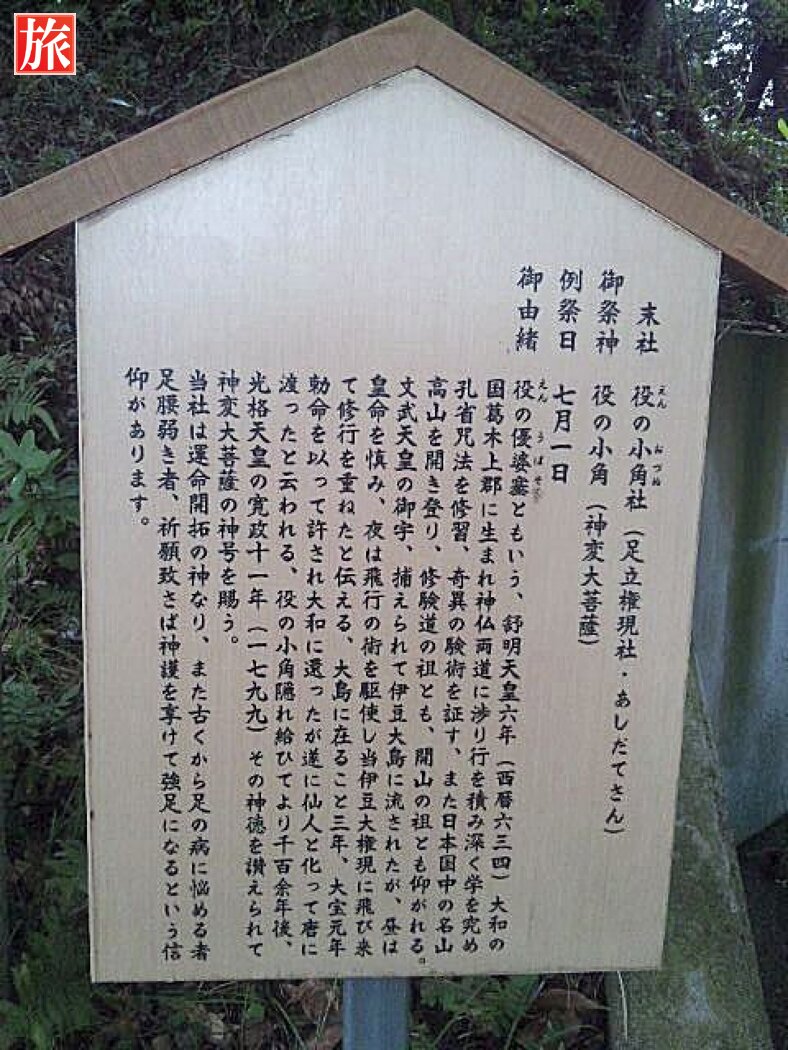 旅
末社 役の小角社（足立権現社・あしだてさん）
えん おづぬ
御祭神 役の小角（神変大菩薩）
例祭日 七月一日
御由緒 役の優婆塞ともいう、舒明天皇六年（西暦六三四）大和の
えん うばそく
国葛木上郡に生まれ神仏両道に渉り行を積み深く学を究め
孔雀咒法を修習、奇異の験術を証す、また日本国中の名山
高山を開き登り、修験道の祖とも、開山の祖とも仰がれる。
文武天皇の御宇、捕えられて伊豆大島に流されたが、昼は
皇命を慎み、夜は飛行の術を駆使し当伊豆大権現に飛び来
て修行を重ねたと伝える、大島に在ること三年、大宝元年
勅命を以って許され大和に還ったが遂に仙人と化って唐に
渡ったと云われる、役の小角隠れ給ひてより千百余年後、
光格天皇の寛政十一年（一七九九）その神徳を讃えられて
神変大菩薩の神号を賜う。
当社は運命開拓の神なり、また古くから足の病に悩める者
足腰弱き者、祈願致さば神護を享けて強足になるという信
仰があります。